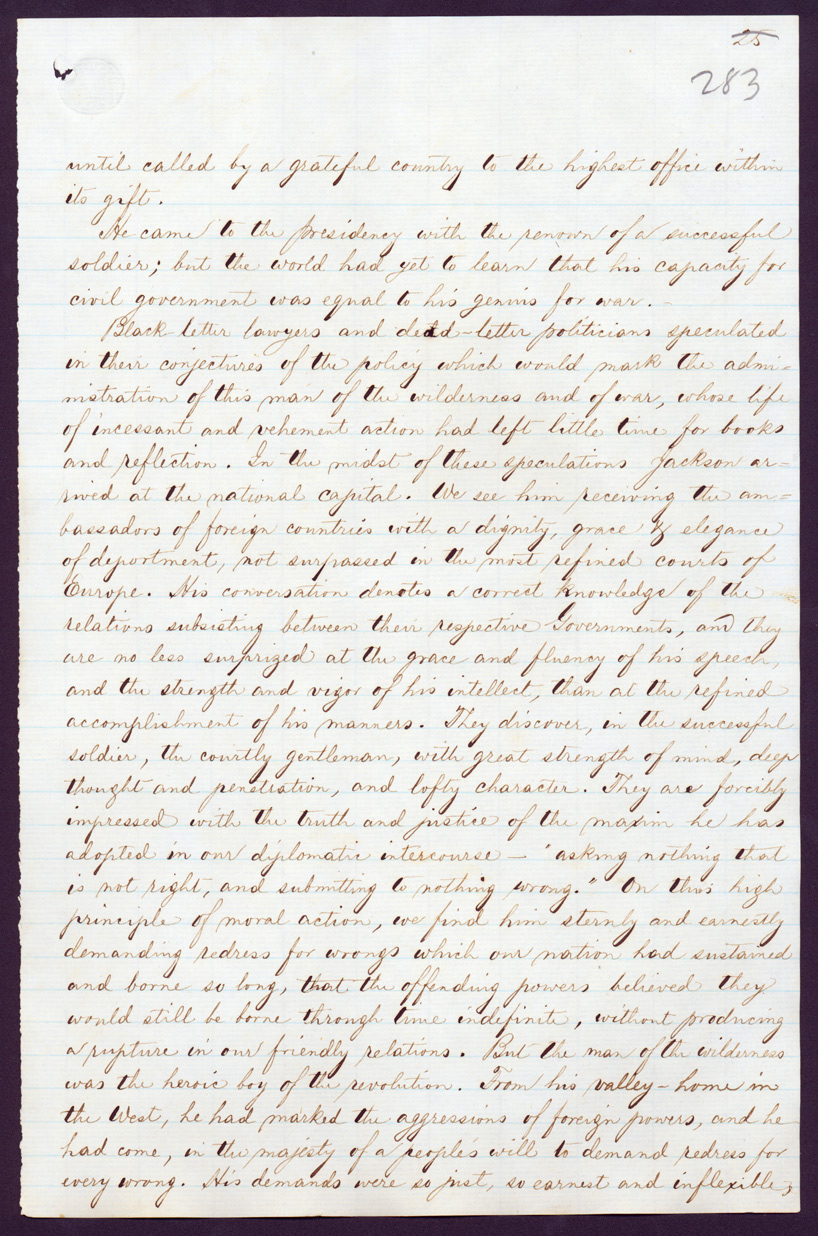 25
283
until called by a grateful country to the highest office within
its gift.
He came to the presidency with the renown of a successful
soldier; but the world had yet to learn that his capacity for
civil government was equal to his genius for war. -
Black-letter lawyers and dead-letter politicians speculated
in their conjectures of the policy which would mark the admi=
nistration of this man of the wilderness and of war, whose life
of incessant and vehement action had left little time for books
and reflection. In the midst of these speculations Jackson ar=
rived at the national capital. We see him receiving the am=
bassadors of foreign countries with a dignity, grace & elegance
of deportment, not surpassed in the most refined courts of
Europe. His conversation denotes a correct knowledge of the
relations subsisting between their respective Governments, and they
are no less surprized at the grace and fluency of his speech,
and the strength and vigor of his intellect, than at the refined
accomplishment of his manners. They discover, in the successful
soldier, the courtly gentleman, with great strength of mind, deep
thought and penetration, and lofty character. They are forcibly
impressed with the truth and justice of the maxim he has
adopted in our diplomatic intercourse — "asking nothing that
is not right, and submitting to nothing wrong." On this high
principle of moral action, we find him sternly and earnestly
demanding redress for wrongs which our nation had sustained
and borne so long, that the offending powers believed they
would still be borne through time indefinite, without producing
a rupture in our friendly relations. But the man of the wilderness
was the heroic boy of the revolution. From his valley-home in
the West, he had marked the aggressions of foreign powers, and he
had come, in the majesty of a people's will to demand redress for
every wrong. His demands were so just, so earnest and inflexible,